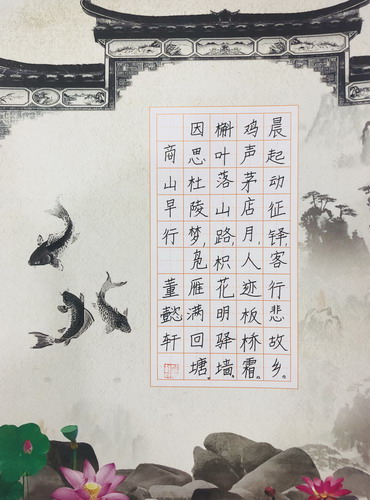 晨起动征铎,客行悲故乡。
鸡声茅店月,人迹板桥霜。
槲叶落山路,枳花明驿墙。
因思杜陵梦,凫雁满回塘。
商山早行 董懿轩